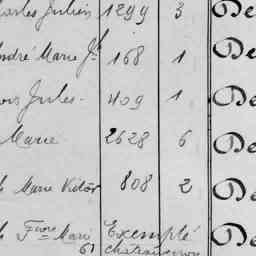 Charles Julien 1299 3 De
André Marie Jh 168 1 De
Jules 409 1 De
Marie 2628 6 De
Marie Victor 808 2 De
Marie Exempté De
61